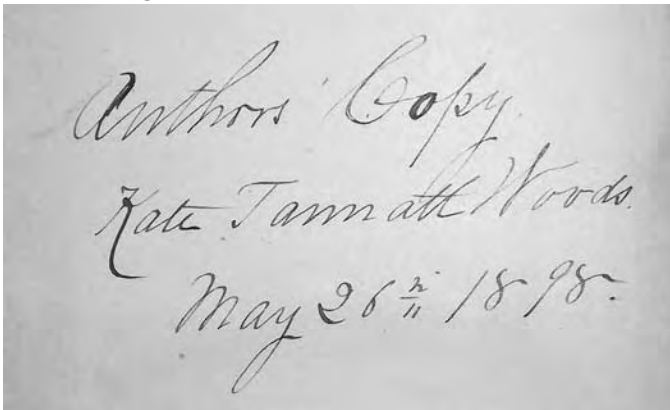 Authors' Copy.
Kate Tannatt Woods.
May 26th 1898.